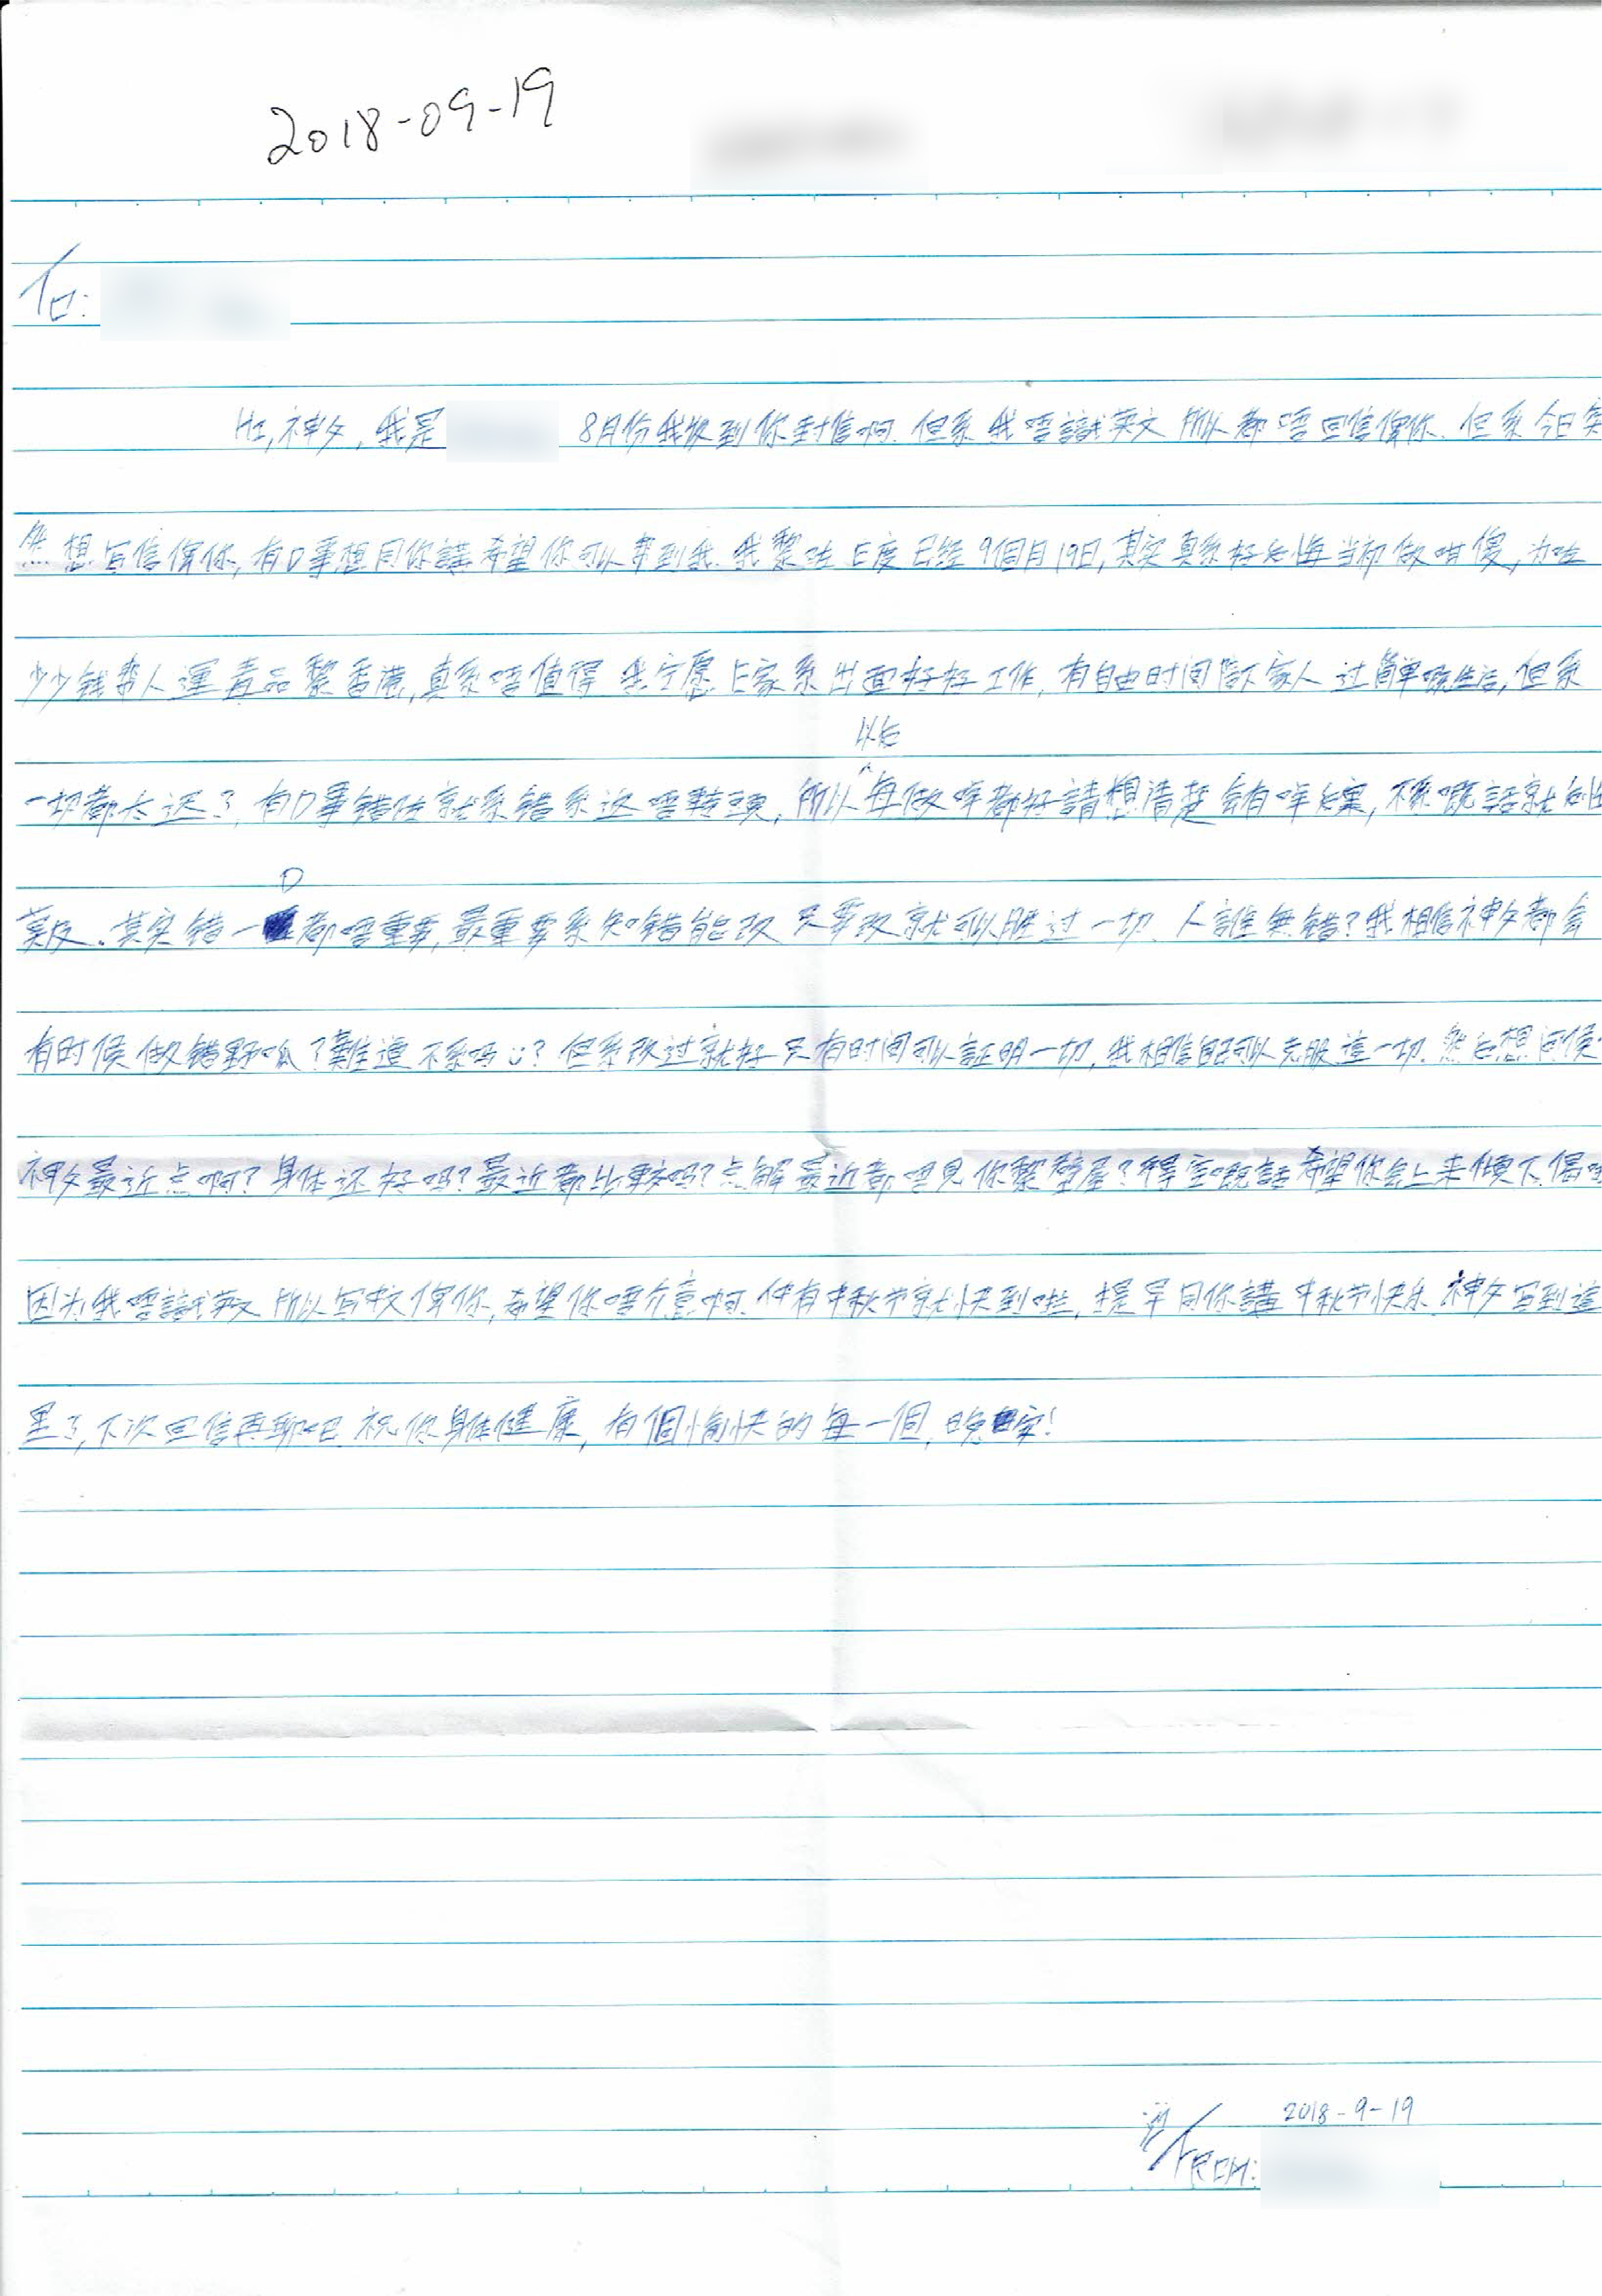 2018-09-19
To:
Hi,神父,我是 8月份我收到你封信啊.但系我唔識英文所以都唔回信俾你.但系今日突
然想写信俾你,有D事想同你講希望你可以幫到我.我黎咗E度已经9個月19日,其实真系好后悔当初做咁傻,为咗
少少钱帮人運毒品黎香港,真系唔值得 我宁愿E家系出面好好工作,有自由时间陪下家人过簡单嘅生活,但系
一切都太迟了,有D事錯咗就系錯系返唔轉頭,所以以后每做咩都好請想清楚會有咩后果,不然嘅話就后悔
莫及.其实錯一D都唔重要,最重要系知錯能改 只要改就可以勝过一切.人誰無錯?我相信神父都会
有时候做錯野呱?難道不系吗?但系改过就好 只有时间可以証明一切,我相信自己可以克服這一切.然后想问候
神父最近点啊?身体还好吗?最近都比較吗?点解最近都唔見你黎壁屋?得空嘅話希望你会上来傾下偈
因为我唔識英文所以写中文俾你,希望你唔介意啊.仲有中秋节就快到啦,提早同你講中秋节快乐.神父写到這
里了,下次回信再聊吧 祝你身体健康,有個愉快的每一個,晚安!
2018-9-19
From: